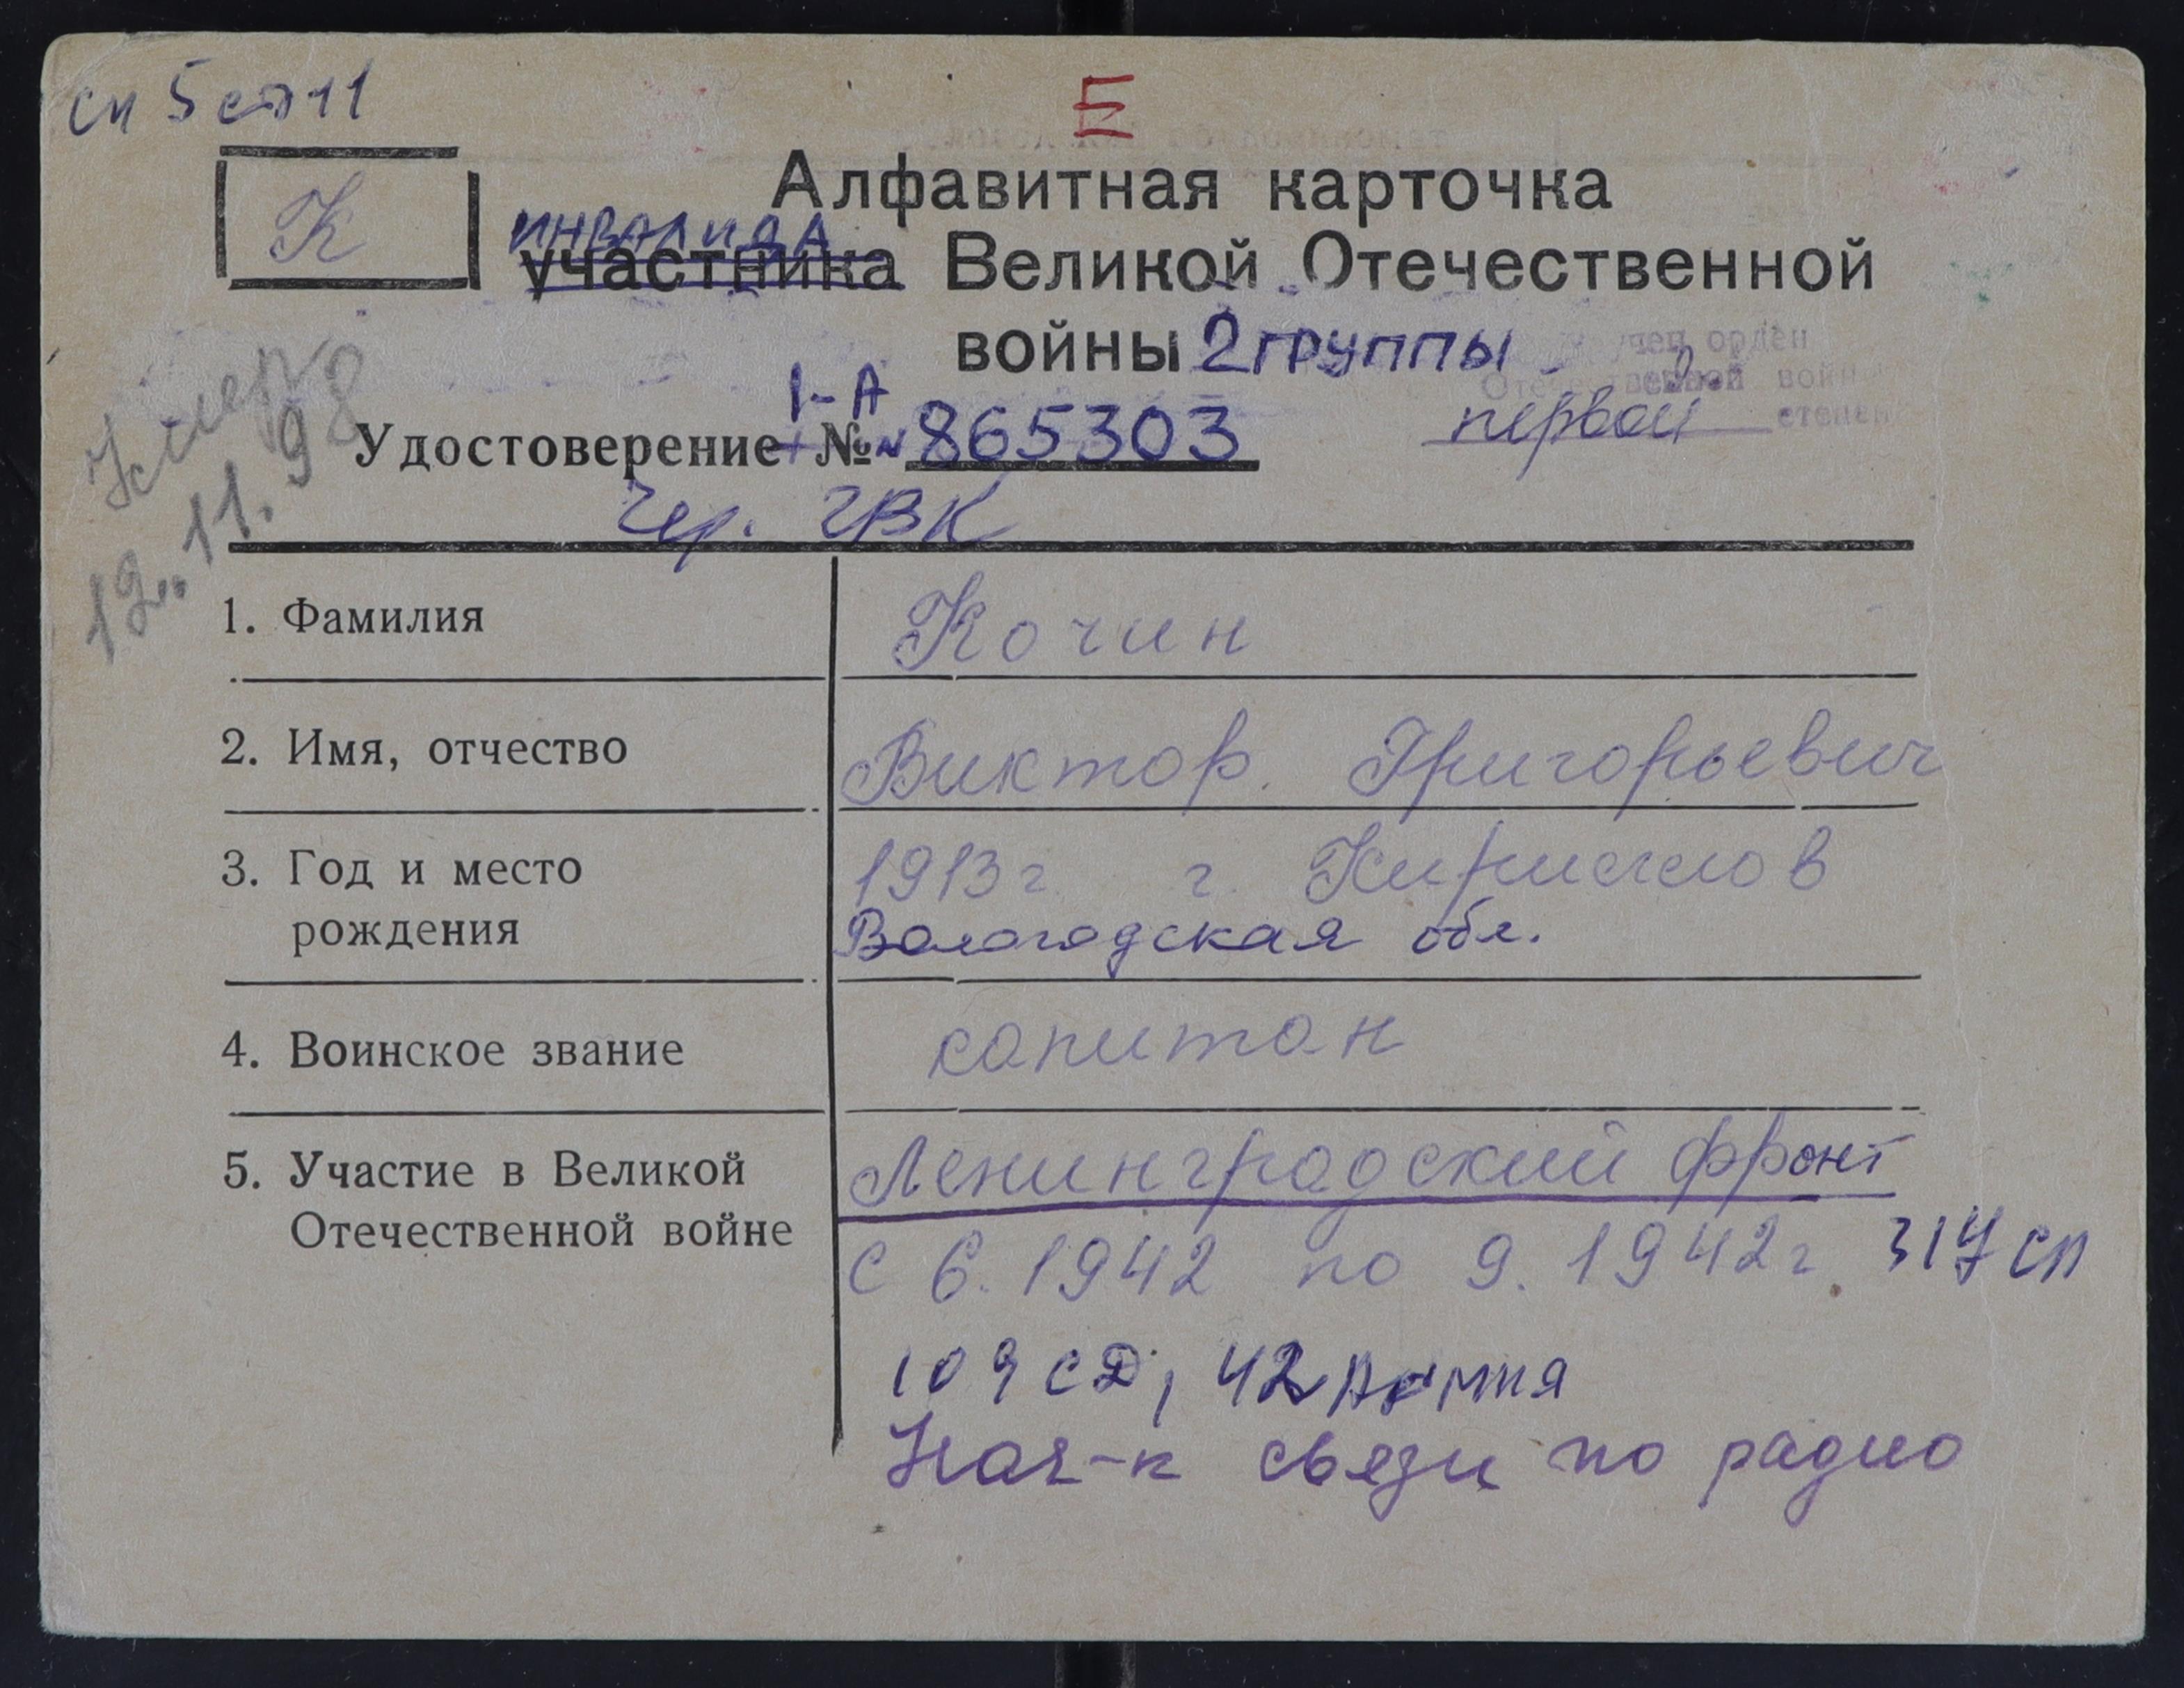 сп 5 ст 11
Е
К
Алфавитная карточка
инвалида
участника Великой Отечественной
войны 2 группы
орден
Отечественной войны
первой степени
I-А
Удостоверение № 865303
Чер. ГВК
Умер
12.11.98
1. Фамилия Кочин
2. Имя, отчество Виктор Григорьевич
3. Год и место 1913 г г. Кириллов
рождения Вологодская обл.
4. Воинское звание капитан
5. Участие в Великой Ленинградский фронт
Отечественной войне с 6.1942 по 9.1942 г. 317 СП
109 СД, 42 Армия
Нач-к связи по радио